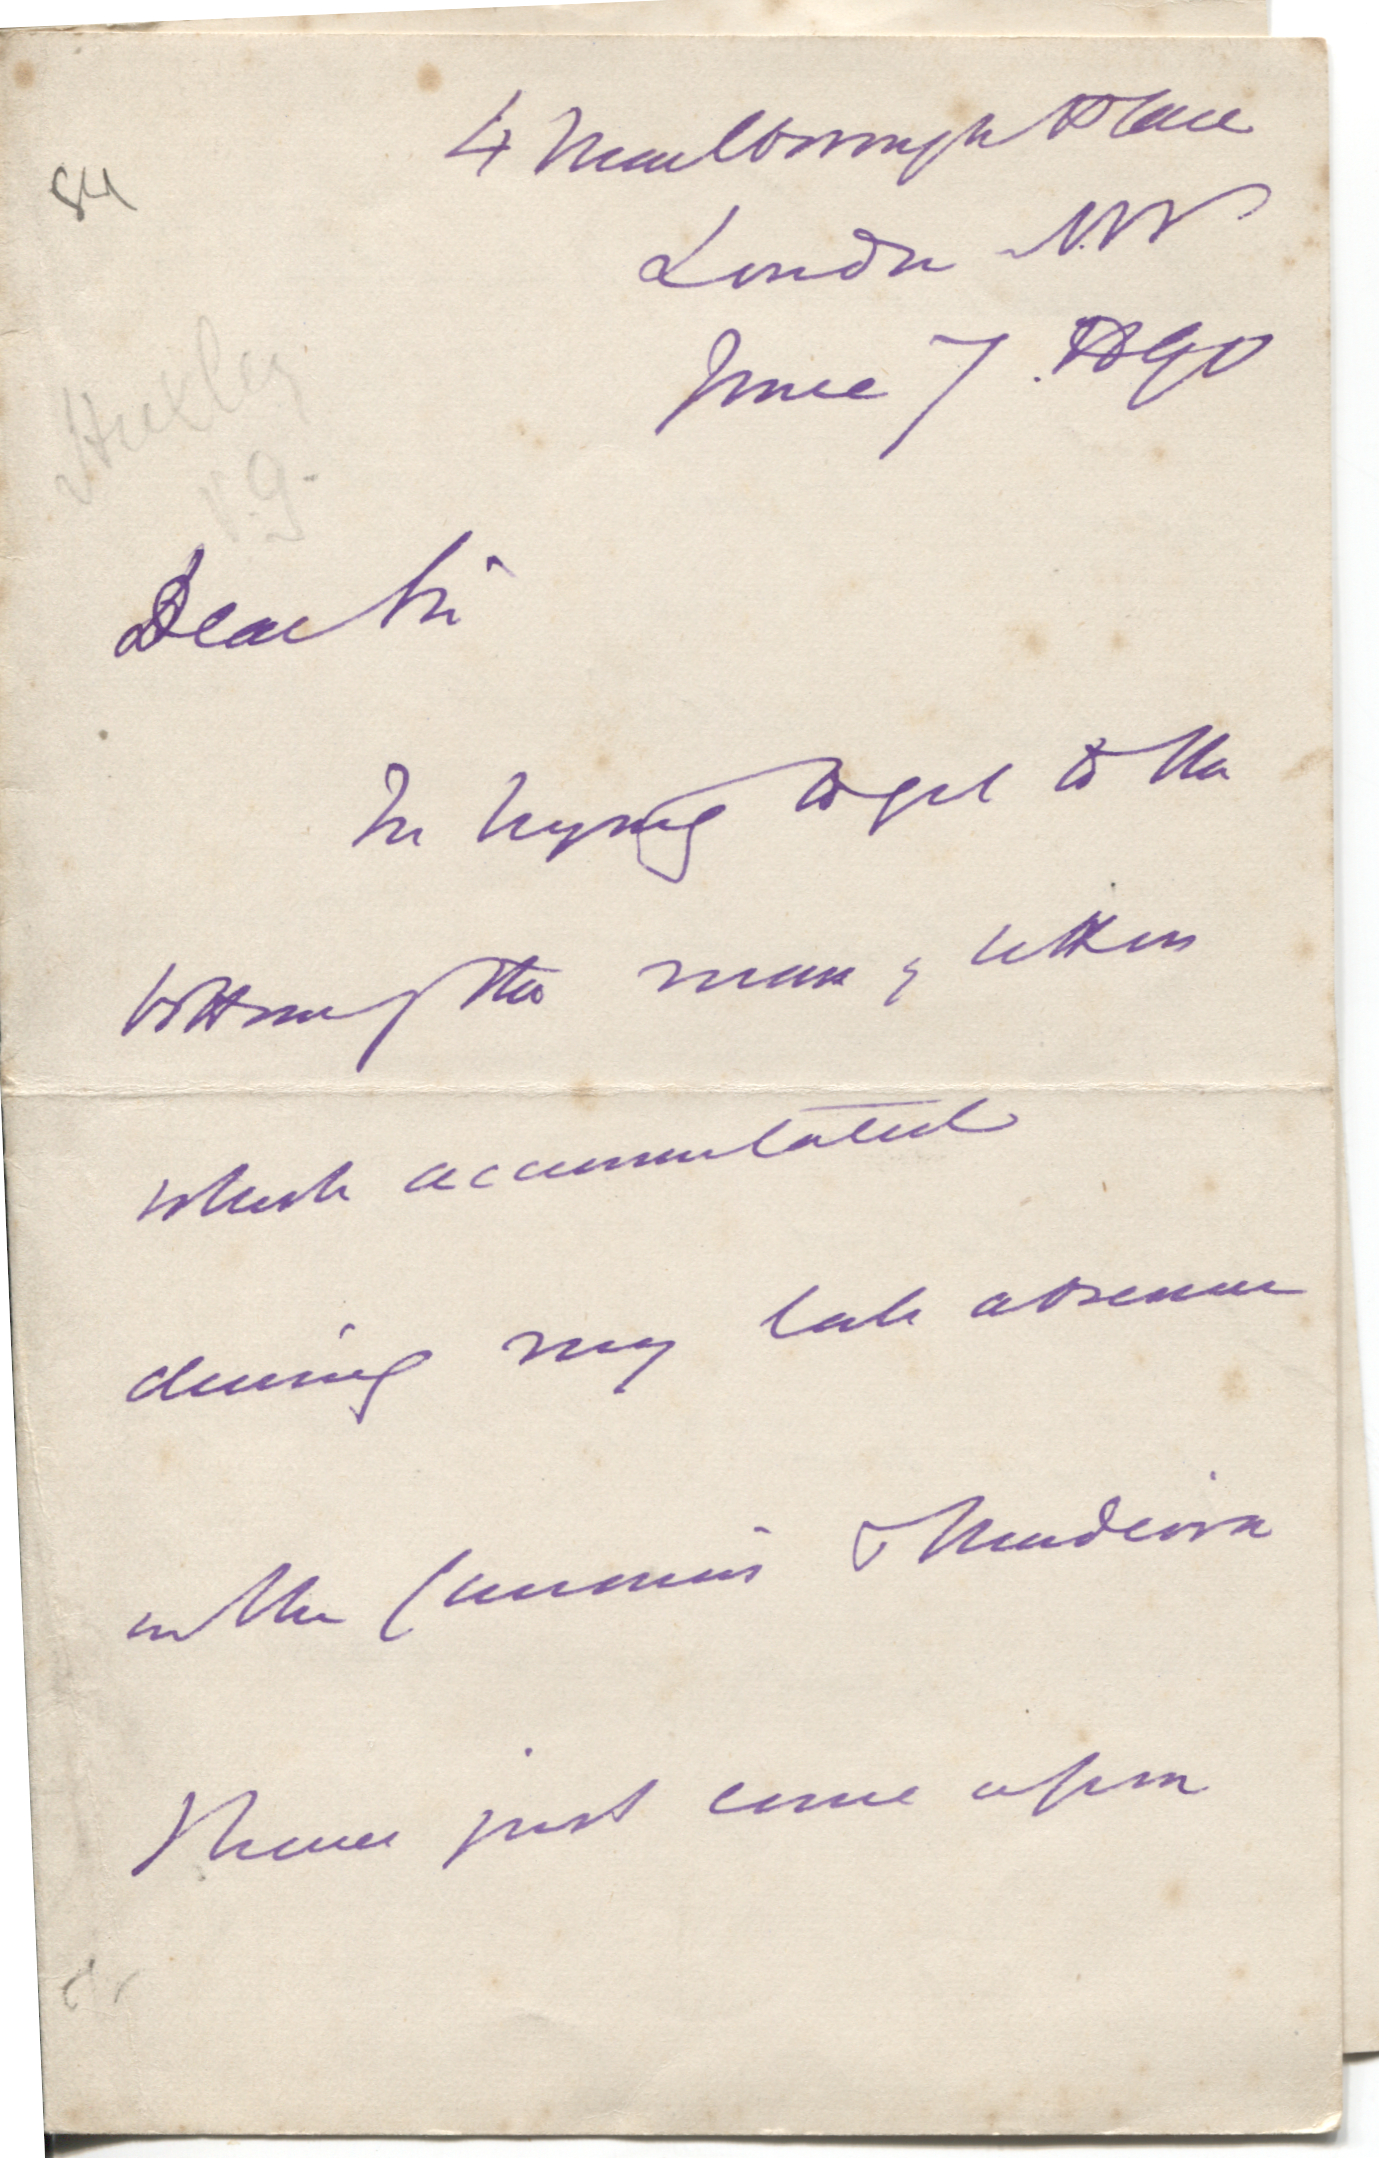 4 Marlborough Place
84
London N.W.
June 7. 1890
Huxley
Dear Sir
In trying to get to the
bottom of the mass of letters
which accumulated
during my late absence
in the Canaries & Madeira
I have just come upon